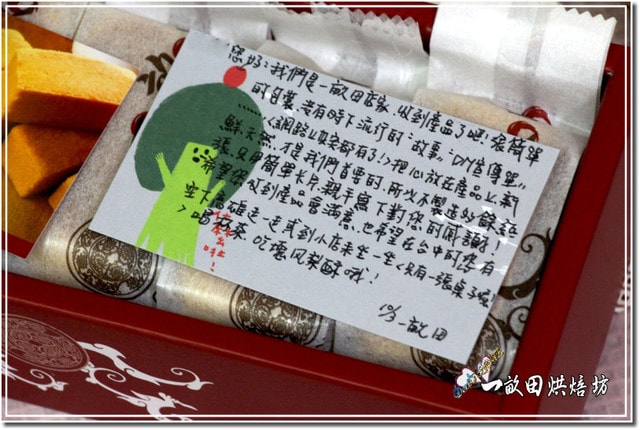 您好:我們是一畝田店家,收到產品了吧!很簡單
的包裝,沒有時下流行的"故事""DM宣傳單"
……(網路上要都有了!)把心放在產品上,新
鮮、天然,才是我們首要的,所以不製造的雜語
後,只用簡單卡片,親手寫下對您的感謝!
希望你收到產品會滿意,也希望在台中的您有
空下高雄走一走或到小店來坐一坐(只有一張桌子喔
)喝飲茶、吃塊鳳梨酥哦!
一畝田
一畝田烘焙坊